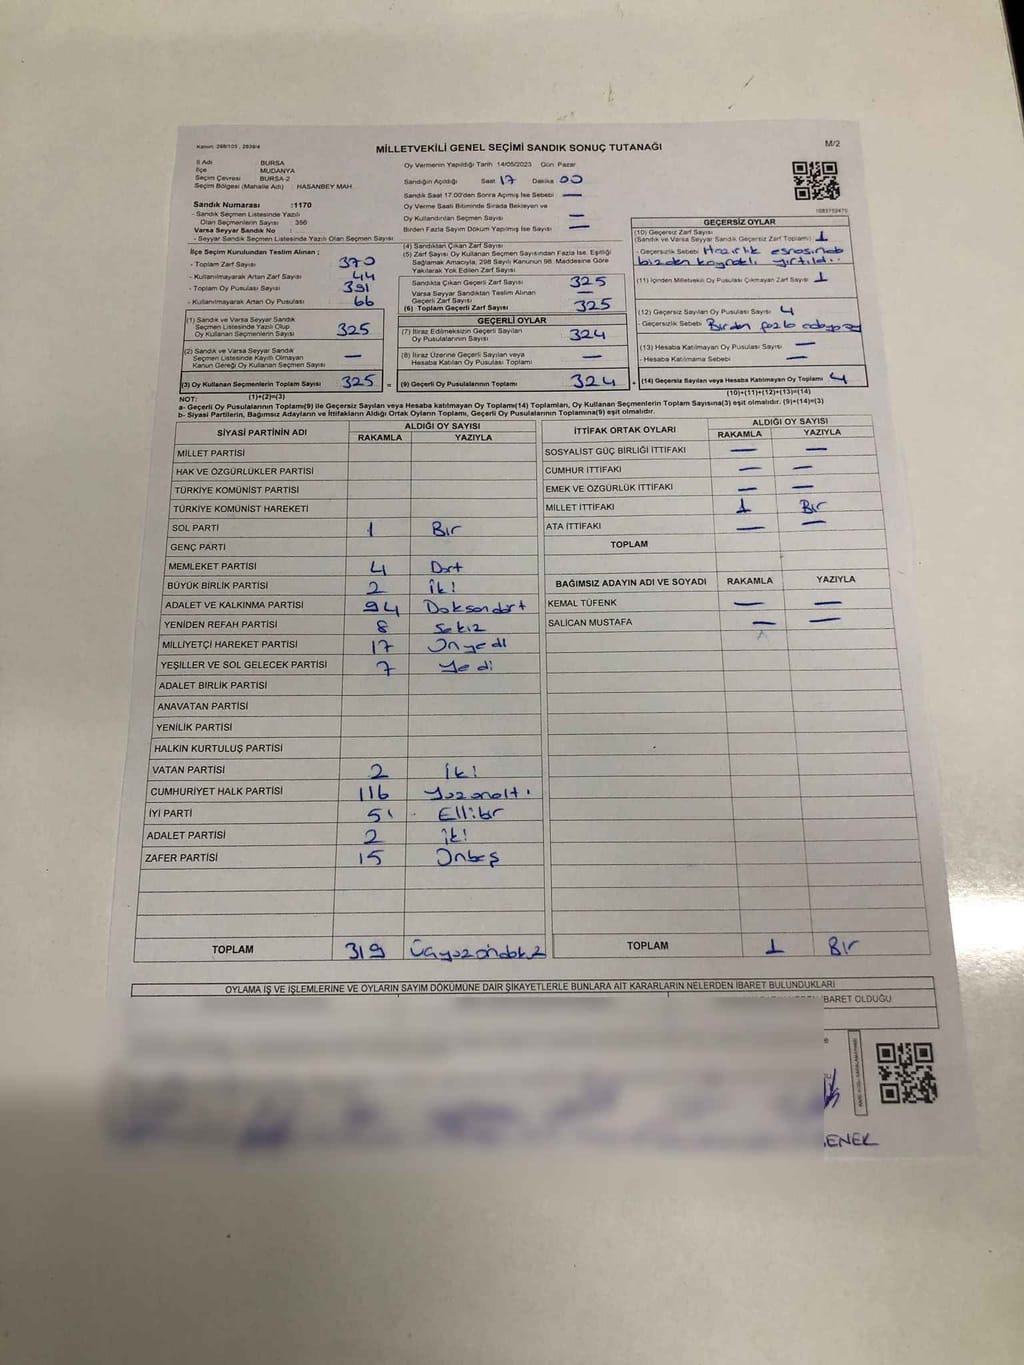 Kanun: 298/105, 2839/4
MİLLETVEKİLİ GENEL SEÇİMİ SANDIK SONUÇ TUTANAĞI
M/2
İl Adı : BURSA
İlçe : MUDANYA
Seçim Çevresi : BURSA-2
Seçim Bölgesi (Mahalle Adı) : HASANBEY MAH
Sandık Numarası :1170
- Sandık Seçmen Listesinde Yazılı
Olan Seçmenlerin Sayısı : 356
Varsa Seyyar Sandık No :
- Seyyar Sandık Seçmen Listesinde Yazılı Olan Seçmen Sayısı
İlçe Seçim Kurulundan Teslim Alınan ;
- Toplam Zarf Sayısı 370
- Kullanılmayarak Artan Zarf Sayısı 44
- Toplam Oy Pusulası Sayısı 391
- Kullanılmayarak Artan Oy Pusulası 66
(1) Sandık ve Varsa Seyyar Sandık
Seçmen Listesinde Yazılı Olup
Oy Kullanan Seçmenlerin Sayısı 325
(2) Sandık ve Varsa Seyyar Sandık
Seçmen Listesinde Kayıtlı Olmayan
Kanun Gereği Oy Kullanan Seçmen Sayısı —
(3) Oy Kullanan Seçmenlerin Toplam Sayısı 325 =
(1)+(2)=(3)
Oy Vermenin Yapıldığı Tarih 14/05/2023 Gün Pazar
Sandığın Açıldığı Saat 17 Dakika 00
Sandık Saat 17.00'den Sonra Açılmış İse Sebebi —
Oy Verme Saati Bitiminde Sırada Bekleyen ve
Oy Kullandırılan Seçmen Sayısı —
Birden Fazla Sayım Dökümü Yapılmış İse Sayısı —
(4) Sandıktan Çıkan Zarf Sayısı
(5) Zarf Sayısı Oy Kullanan Seçmen Sayısından Fazla İse, Eşitliği
Sağlamak Amacıyla, 298 Sayılı Kanunun 98. Maddesine Göre
Yakılarak Yok Edilen Zarf Sayısı
Sandıkta Çıkan Geçerli Zarf Sayısı 325
Varsa Seyyar Sandıktan Teslim Alınan
Geçerli Zarf Sayısı —
(6) Toplam Geçerli Zarf Sayısı 325
GEÇERLİ OYLAR
(7) İtiraz Edilmeksizin Geçerli Sayılan
Oy Pusulalarının Sayısı 324
(8) İtiraz Üzerine Geçerli Sayılan veya
Hesaba Katılan Oy Pusulası Toplamı —
(9) Geçerli Oy Pusulalarının Toplamı 324 +
GEÇERSİZ OYLAR
(10) Geçersiz Zarf Sayısı
(Sandık ve Varsa Seyyar Sandık Geçersiz Zarf Toplamı) 1
- Geçersizlik Sebebi Hazırlık esnasında
bizden kaynaklı yırtıldı.
(11) İçinden Milletvekili Oy Pusulası Çıkmayan Zarf Sayısı 1
(12) Geçersiz Sayılan Oy Pusulası Sayısı 4
- Geçersizlik Sebebi Birden fazla
(13) Hesaba Katılmayan Oy Pusulası Sayısı —
- Hesaba Katılmama Sebebi —
(14) Geçersiz Sayılan veya Hesaba Katılmayan Oy Toplamı 4
(10)+(11)+(12)+(13)=(14)
NOT:
a- Geçerli Oy Pusulaları Toplamı(9) ile Geçersiz Sayılan veya Hesaba katılmayan Oy Toplamı(14) Toplamları, Oy Kullanan Seçmenlerin Toplam Sayısına(3) eşit olmalıdır. (9)+(14)=(3)
b- Siyasi Partilerin, Bağımsız Adayların ve İttifakların Aldığı Ortak Oyların Toplamı, Geçerli Oy Pusulalarının Toplamına(9) eşit olmalıdır.
SİYASİ PARTİNİN ADI ALDIĞI OY SAYISI
RAKAMLA YAZIYLA
MİLLET PARTİSİ
HAK VE ÖZGÜRLÜKLER PARTİSİ
TÜRKİYE KOMÜNİST PARTİSİ
TÜRKİYE KOMÜNİST HAREKETİ
SOL PARTİ 1 Bir
GENÇ PARTİ
MEMLEKET PARTİSİ 4 Dört
BÜYÜK BİRLİK PARTİSİ 2 İki
ADALET VE KALKINMA PARTİSİ 94 Doksandört
YENİDEN REFAH PARTİSİ 8 Sekiz
MİLLİYETÇİ HAREKET PARTİSİ 17 Onyedi
YEŞİLLER VE SOL GELECEK PARTİSİ 7 Yedi
ADALET BİRLİK PARTİSİ
ANAVATAN PARTİSİ
YENİLİK PARTİSİ
HALKIN KURTULUŞ PARTİSİ
VATAN PARTİSİ 2 İki
CUMHURİYET HALK PARTİSİ 116 Yüzonaltı
İYİ PARTİ 51 Ellibir
ADALET PARTİSİ 2 İki
ZAFER PARTİSİ 15 Onbeş
TOPLAM 319 Üçyüzondokuz
İTTİFAK ORTAK OYLARI ALDIĞI OY SAYISI
RAKAMLA YAZIYLA
SOSYALİST GÜÇ BİRLİĞİ İTTİFAKI — —
CUMHUR İTTİFAKI — —
EMEK VE ÖZGÜRLÜK İTTİFAKI — —
MİLLET İTTİFAKI 1 Bir
ATA İTTİFAKI — —
TOPLAM
BAĞIMSIZ ADAYIN ADI VE SOYADI RAKAMLA YAZIYLA
KEMAL TÜFENK — —
SALİCAN MUSTAFA — —
TOPLAM 1 Bir
OYLAMA İŞ VE İŞLEMLERİNE VE OYLARIN SAYIM DÖKÜMÜNE DAİR ŞİKAYETLERLE BUNLARA AİT KARARLARIN NELERDEN İBARET BULUNDUKLARI
İBARET OLDUĞU
ENEK